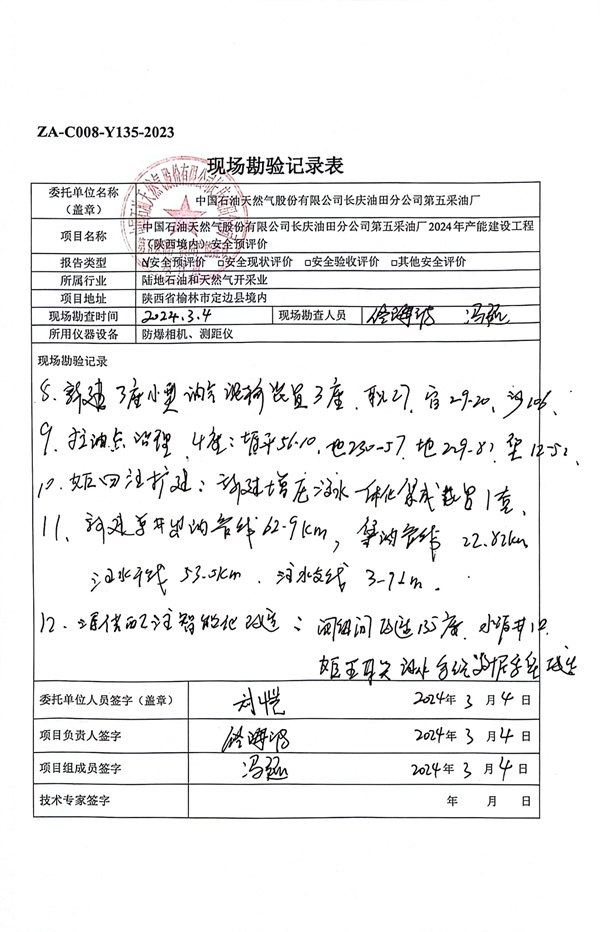 ZA-C008-Y135-2023
现场勘验记录表
委托单位名称（盖章）
中国石油天然气股份有限公司长庆油田分公司第五采油厂
项目名称
中国石油天然气股份有限公司长庆油田分公司第五采油厂2024年产能建设工程
（陕西境内）安全预评价
报告类型 ☑安全预评价 □安全现状评价 □安全验收评价 □其他安全评价
所属行业 陆地石油和天然气开采业
项目地址 陕西省榆林市定边县境内
现场勘查时间 2024.3.4 现场勘查人员
所用仪器设备 防爆相机、测距仪
现场勘验记录
8. 新建3座小型 装置3座. 27, 29-20, 106.
9. 拉油点治理 4座: 56-10, 地230-57. 地229-82
10. 扩建: 新建增 注水一体化集成装置1套.
11、新建单井出油管线62.9km, 集油管线 22.82km
注水干线 53.5km. 注水支线
12. 智能化改造: 间改造135座.
委托单位人员签字（盖章） 2024年 3 月 4 日
项目负责人签字 2024年 3 月 4 日
项目组成员签字 2024年 3 月 4 日
技术专家签字 年 月 日